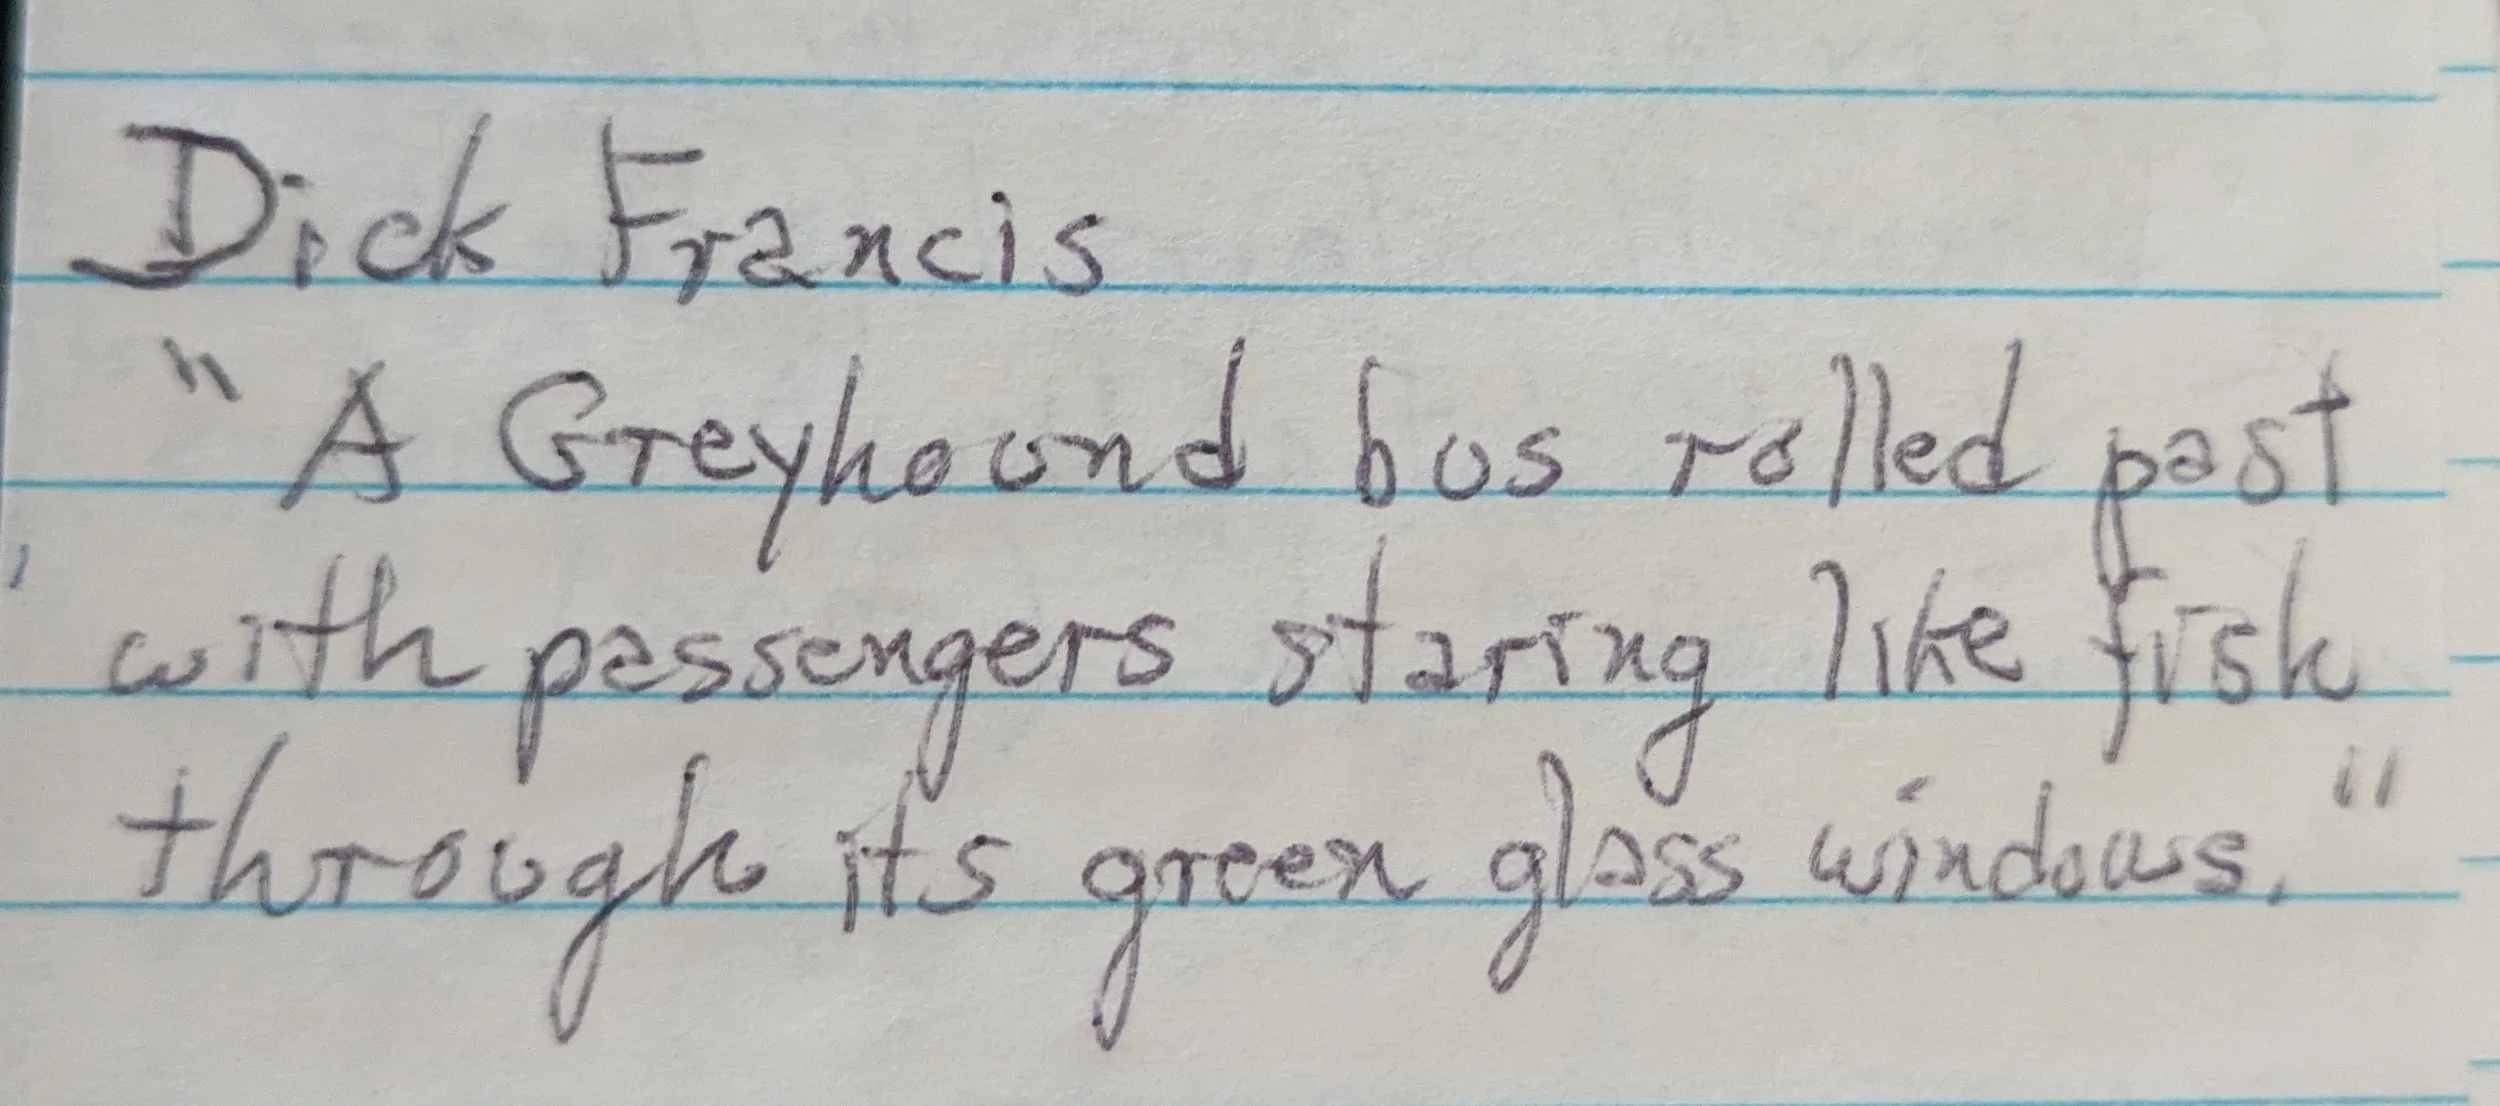 Dick Francis
"A Greyhound bus rolled past
with passengers staring like fish
through its green glass windows."